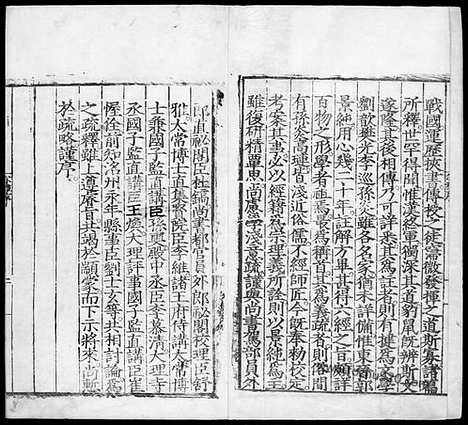 戰國運歷挾書傳授之徒寖微發揮之道斯寡諸篇
所釋世罕得聞惟漢終軍獨深其道豹鼠既辨斯文
遂隆其後相傳乃可詳悉其爲註者則有犍爲文學
劉歆樊光李巡孫炎雖各名家猶未詳備惟東晉郭
景純用心幾二十年註解方畢甚得六經之旨頗詳
百物之形學者祖焉最爲稱首其爲義疏者則俗間
有孫炎高璉皆淺近俗儒不經師匠今既奉勅校定
考案其事必以經籍爲宗理義所詮則以景純爲主
雖復研精覃思尚慮學淺意疏謹與尚書駕部員外
郎直祕閣臣杜鎬尚書都官員外郎祕閣校理臣舒
雅太常博士直集賢院臣李維諸王府侍講太常博
士兼國子監直講臣孫奭殿中丞臣李慕清大理寺
丞國子監直講臣王煥大理評事國子監直講臣崔
偓佺前知洺州永年縣事臣劉士玄等共相討論爲
之疏釋雖上遵睿旨共竭於顓蒙而下示將來尚慙
於疏略謹序